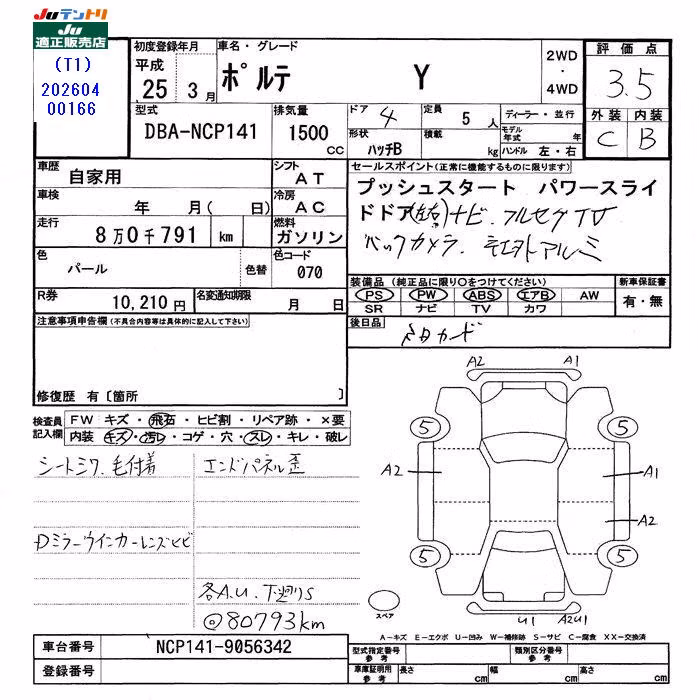 JUテントリ
JU
適正販売店
(T1)
202604
00166
初度登録年月
平成
25 3月
車名・グレード
ポルテ Y
2WD
・
4WD
評価点
3.5
外装 内装
C B
型式
DBA-NCP141
排気量
1500 cc
ドア 4
形状 ハッチB
定員 5 人
積載 kg
ディーラー・並行
モデル年式 年
ハンドル 左・右
車歴
自家用
シフト
AT
車検
年 月( 日)
冷房
AC
走行
8万0千791 km
燃料
ガソリン
色
パール
色替
色コード
070
R券
10,210円
名変通知期限
月 日
セールスポイント(正常に機能するものに限ります)
プッシュスタート パワースライ
ドドア(左右)ナビ.フルセグTV
バックカメラ.社外アルミ
装備品(純正品に限り○をつけてください)
PS PW ABS エアB AW
SR ナビ TV カワ
新車保証書
有・無
後日品
メタカード
注意事項申告欄(不具合内容等は具体的に記入して下さい)
修復歴 有〔箇所 〕
検査員
記入欄
FW キズ・飛石・ヒビ割・リペア跡・×要
内装 キズ・汚レ・コゲ・穴・スレ・キレ・破レ
シートシワ.毛付着
エンドパネル歪
Dミラーウインカーレンズヒビ
各A.U.下廻りS
@80793km
A2 A1
5 5
A2 A1
A2
5 5
スペア
U1 A2U1
A-キズ E-エクボ U-凹み W-補修跡 S-サビ C-腐食 XX-交換済
車台番号
NCP141-9056342
登録番号
型式指定番号
参考
類別区分番号
参考
車庫証明用
参考
長さ cm
幅 cm
高さ cm